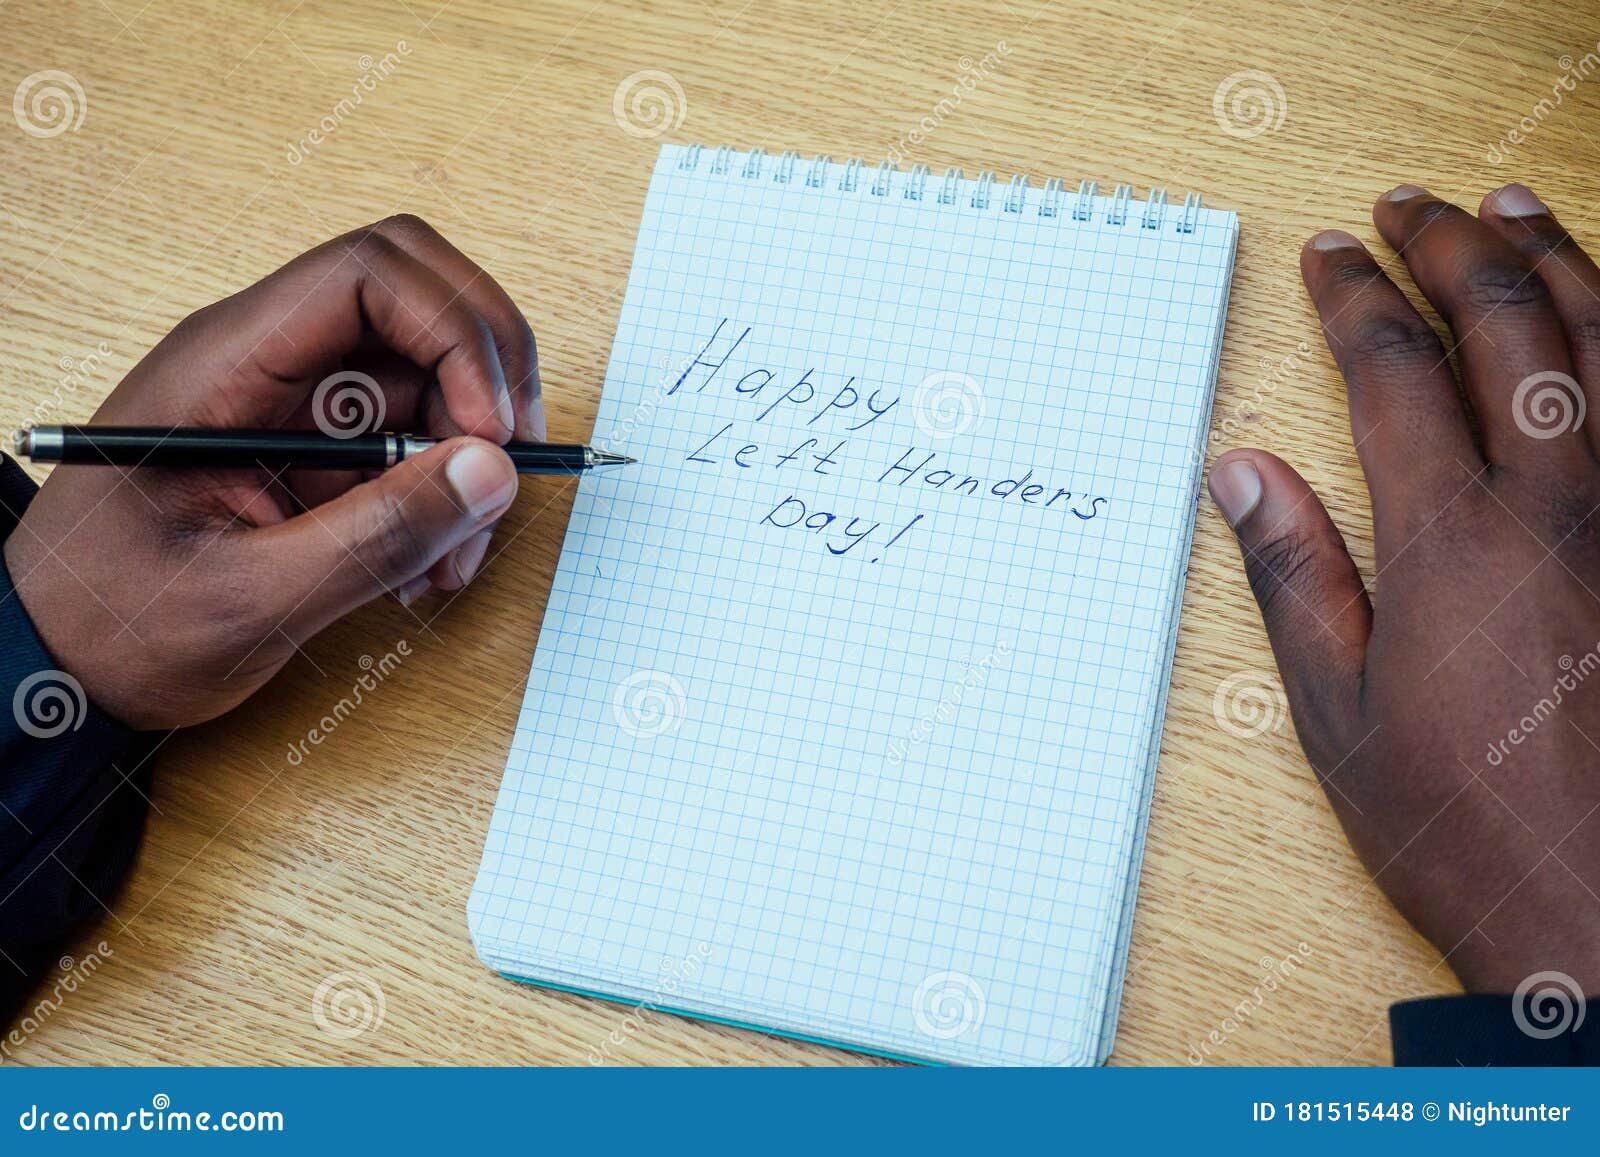 Happy
Left Hander's
Day!
dreamstime.com
ID 181515448 © Nightunter